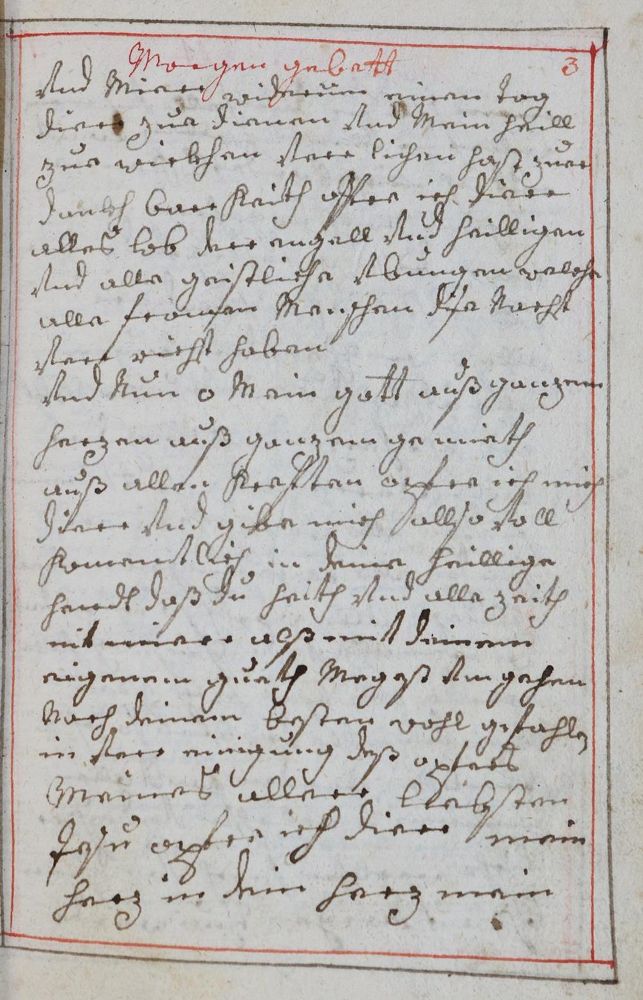 Morgen gebett 3
Vnd Mierr widerum einen tag
dierr zue dienen Vnd Mein heill
zue wirckhen Verr lichen hast zuer
danckh barr Keith opfre ich dierr
alles lob derr engell Vnd heilligen
Vnd alle geistliche Vbungen welche
alle fromen Menschen dise Nacht
Verr richt haben
Vnd Nun o Mein gott auß ganzem
herzen auß ganzem gemieth
auß allen Krefften opfre ich mich
dierr Vnd gibe mich allso Voll
Komentlich in deine heillige
hendt daß du heith Vnd alle zeith
mit mierr alß mit deinem
eigenem gueth Megest Vmgehen
Nach deinem besten wohl gefahlen
in Verr einigung deß opfers
Meines allerr liebsten
Jesu opfre ich dierr mein
herz in dein herz mein